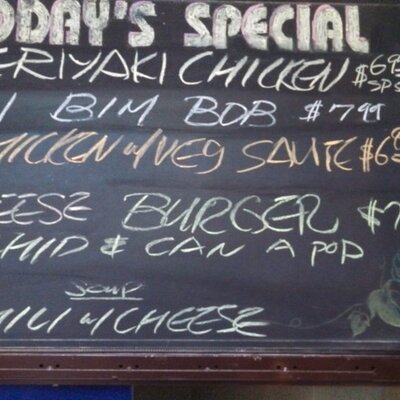 ODAY'S SPECIAL
ERIYAKI CHICKEN $6.95
SPS
BIM BOB $7.99
HICKEN w/VEG SAUTE $6
EESE BURGER $7
HIP & CAN A POP
SOUP
HILI w/ CHEESE